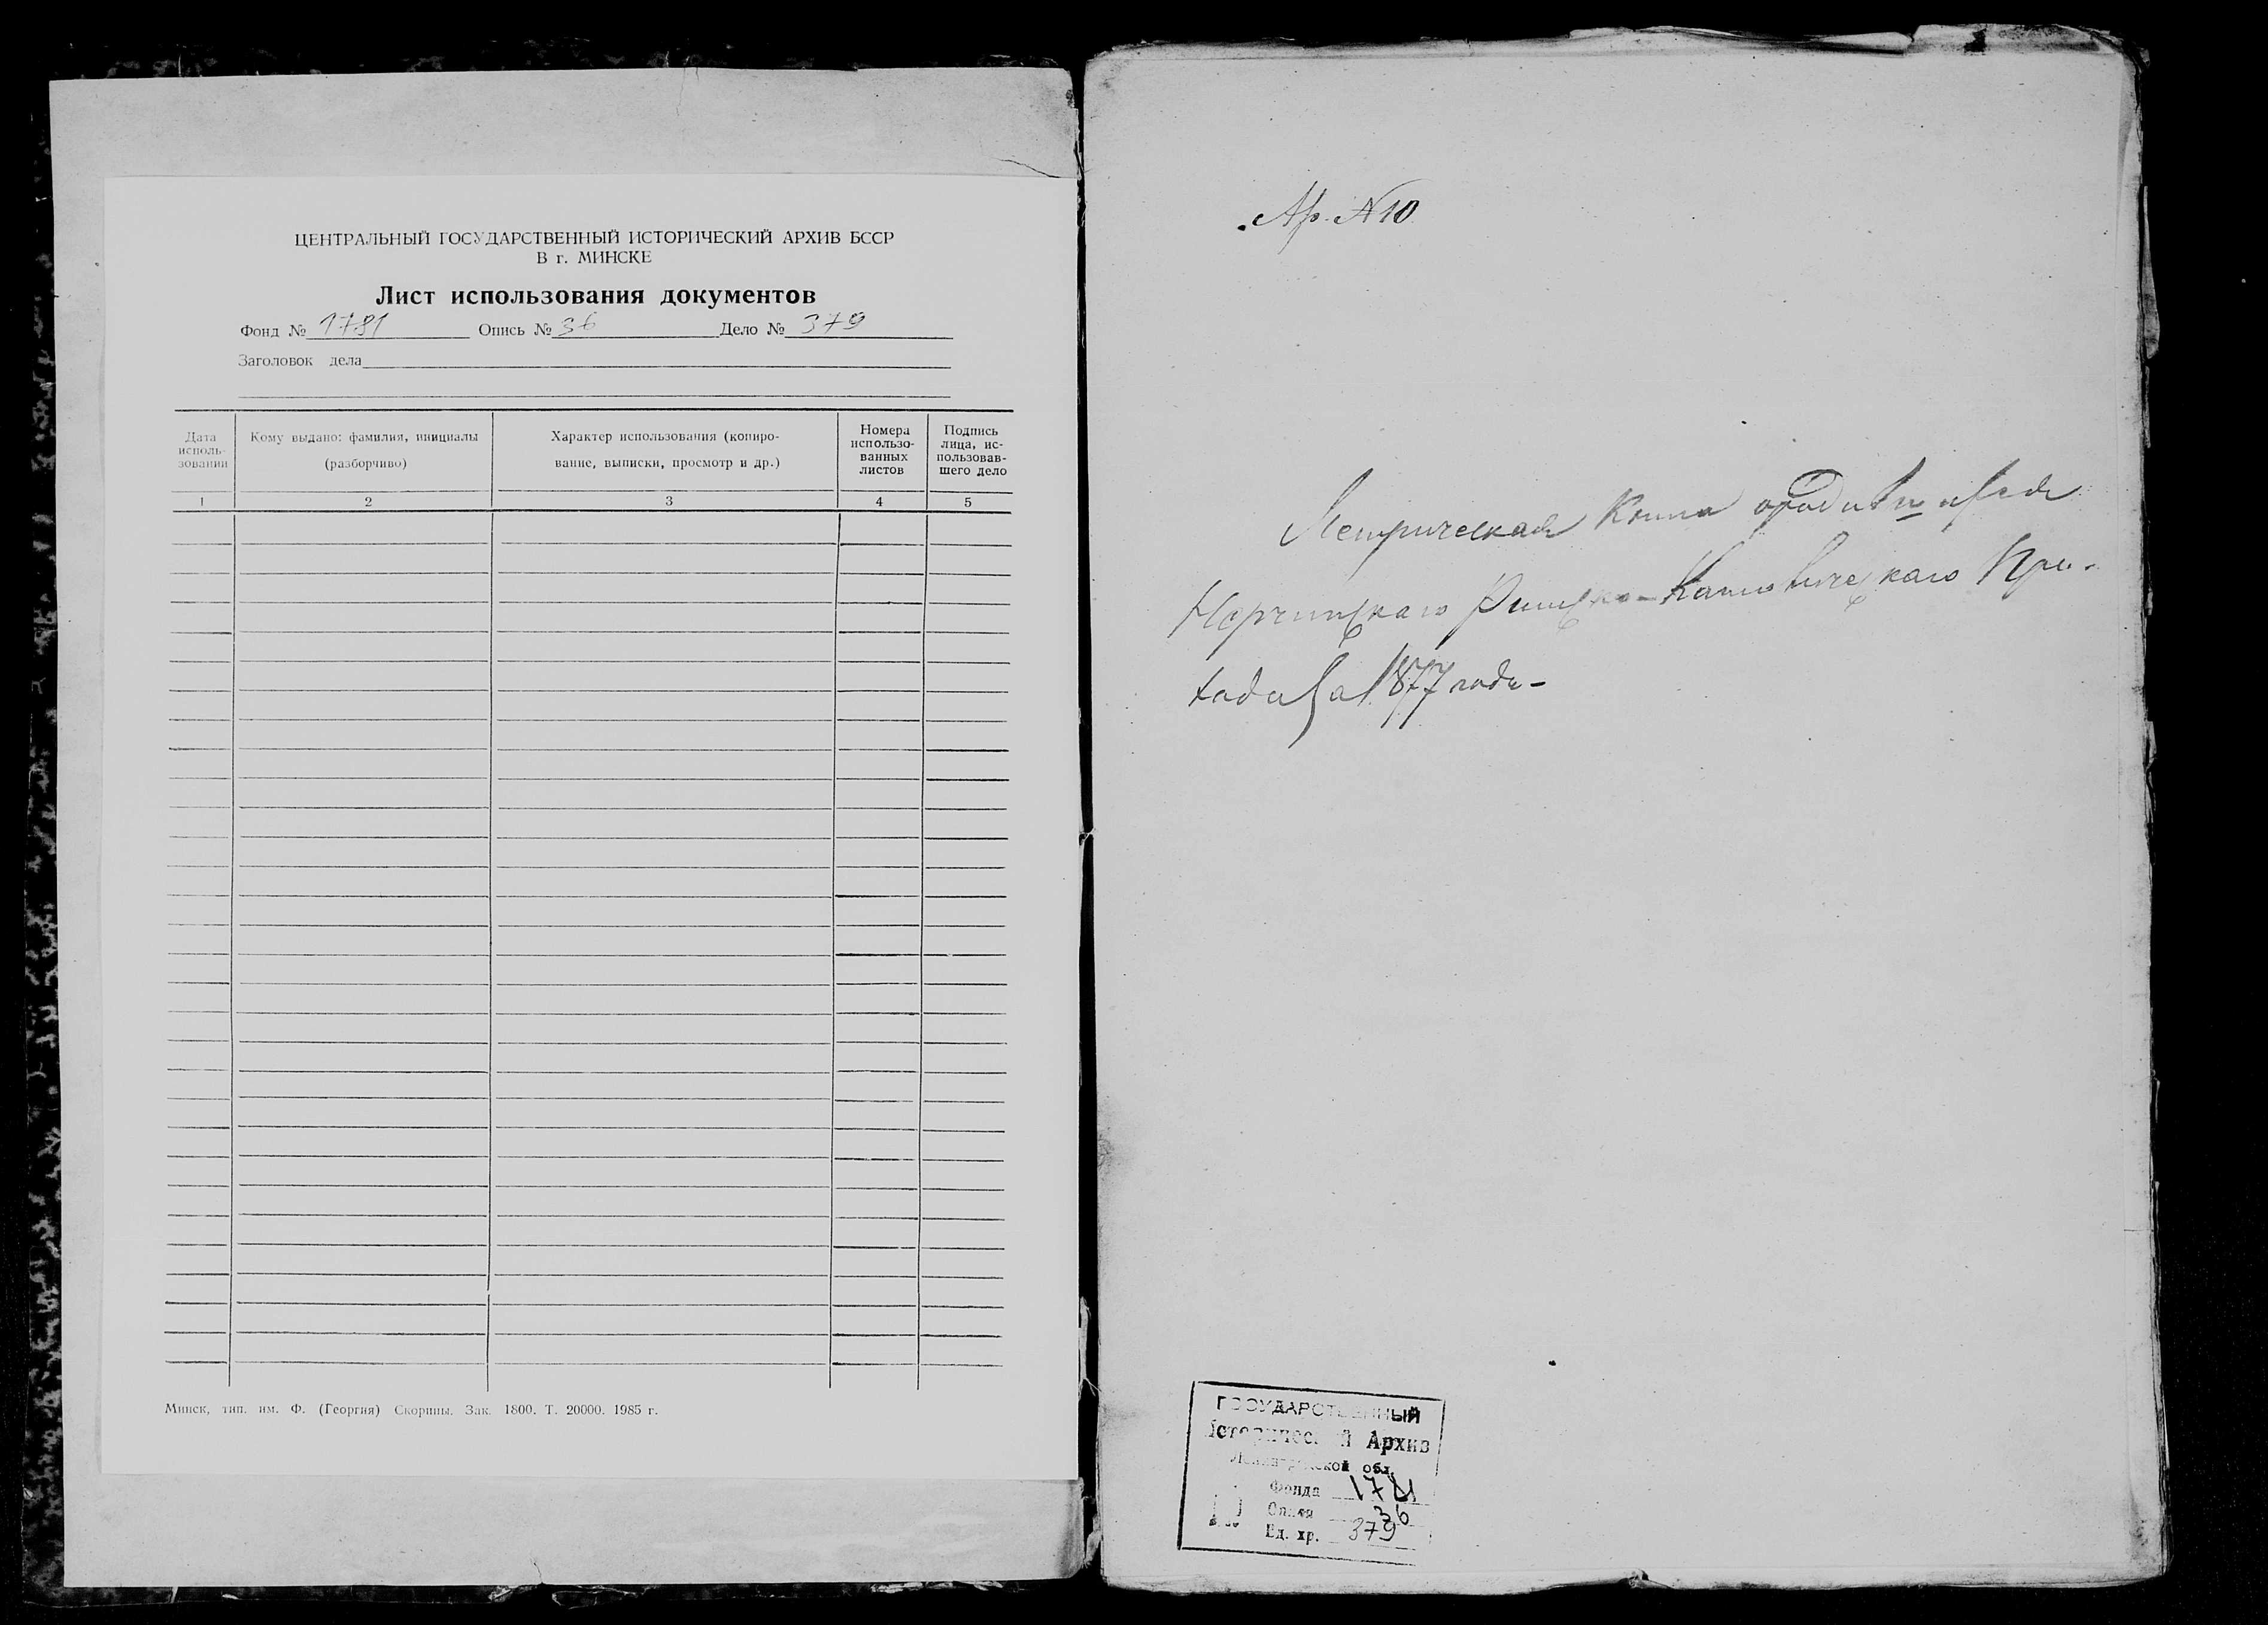 ЦЕНТРАЛЬНЫЙ ГОСУДАРСТВЕННЫЙ ИСТОРИЧЕСКИЙ АРХИВ БССР
В г. МИНСКЕ
Лист использования документов
Фонд № 1781 Опись № 36 Дело № 379
Заголовок дела
Дата исполь-зования
Кому выдано: фамилия, инициалы (разборчиво)
Характер использования (копиро-вание, выписки, просмотр и др.)
Номера использо-ванных листов
Подпись лица, ис-пользовав-шего дело
1 2 3 4 5
Минск, тип. им. Ф. (Георгия) Скорины. Зак. 1800. Т. 20000. 1985 г.
Ар. № 10
Метрическая Книга
Римско-Католическаго При-
хода за 1877 годъ-
ГОСУДАРСТВЕННЫЙ
Исторический Архив
Ленинградской обл.
Фонда 1781
Описи 36
Ед. хр. 379